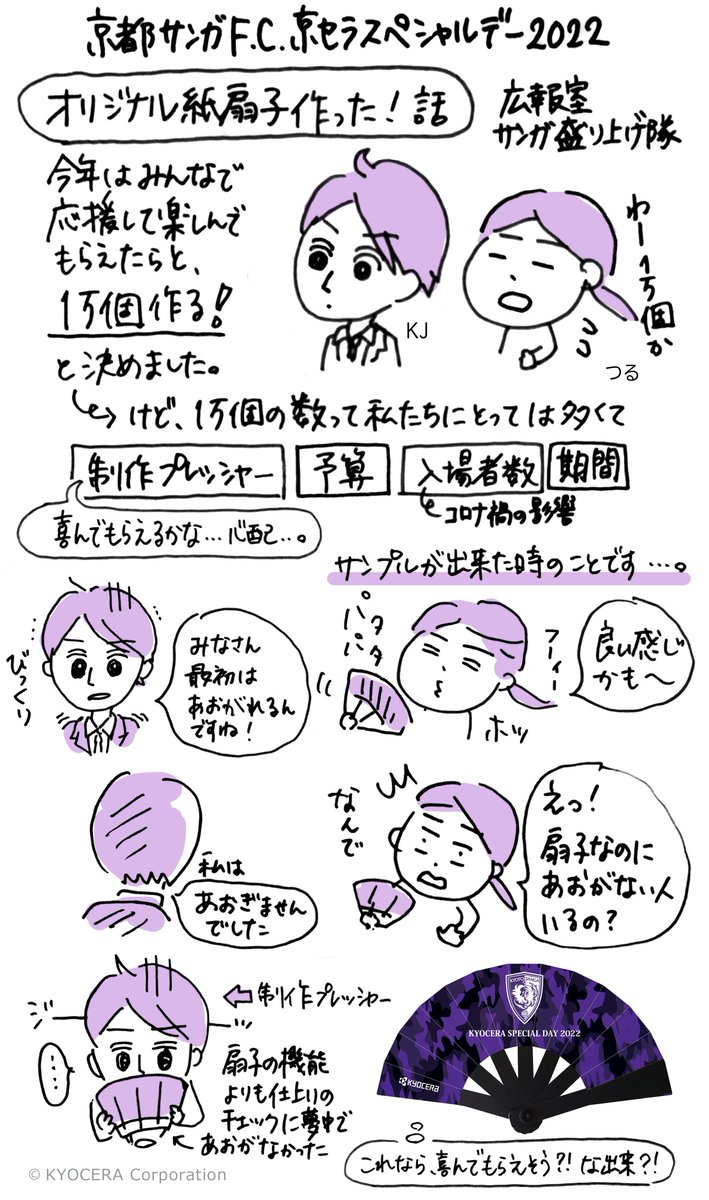 京都サンガF.C.京セラスペシャルデー2022
オリジナル紙扇子作った！話
広報室
サンガ盛り上げ隊
今年はみんなで
応援して楽しんで
もらえたらと、
1万個作る！
と決めました。
KJ
わー1万個か
つる
けど、1万個の数って私たちにとっては多くて
制作プレッシャー
予算
入場者数
期間
コロナ禍の影響
喜んでもらえるかな…心配…。
サンプルが出来た時のことです…。
びっくり
みなさん
最初は
あおがれるん
ですね！
パタパタ
フーィー
ホッ
良い感じ
かも〜
私は
あおぎません
でした
なんで
えっ！
扇子なのに
あおがない人
いるの？
ジーッ
制作プレッシャー
…
扇子の機能
よりも仕上りの
チェックに夢中で
あおがなかった
KYOTO
SANGA
KYOCERA SPECIAL DAY 2022
KYOCERA
これなら、喜んでもらえそう?!な出来?!
© KYOCERA Corporation